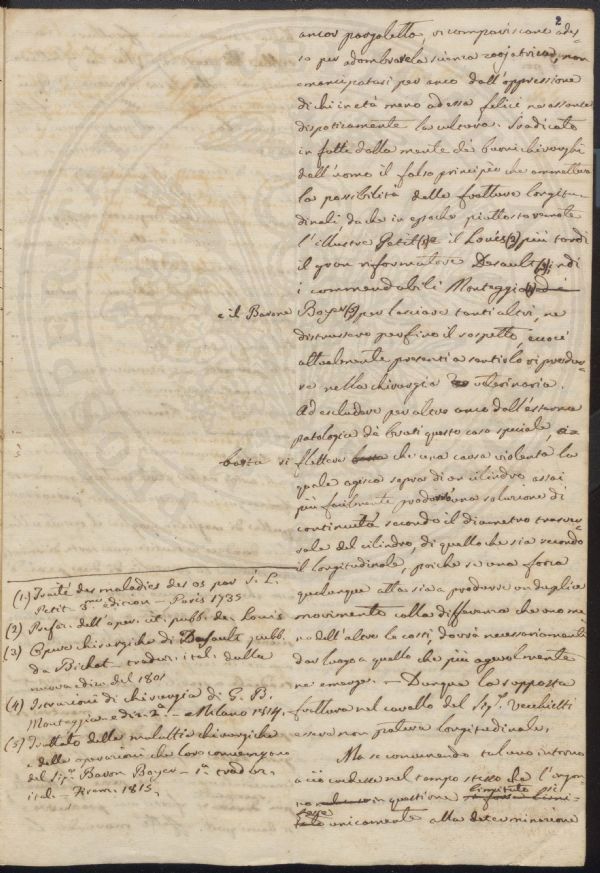 2
ancor pargoletta, si compariscano ades=
so per adombrare la scienza zoojatrica, non
emancipatasi per anco dall'oppressione
di chi in età meno ad essa felici ne assonse
dispoticamente la cultura. Sradicato
in fatto dalla mente de' buoni chirurghi
dell'uomo il falso principio che ammetteva
la possibilità delle fratture longitu=
dinali, da che in epoche piuttosto remote
l'illustre Petit (1) e il Louis (2), più tardi
il gran riformatore Desault (3), indi
i commendabili Monteggia (4)
e il Barone Boyer (5) per lasciare tanti altri, ne
distrussero perfino il sospetto,
attualmente presenti a sentirlo riprodur=
re nella chirurgia veterinaria.
Ad escludere per altro anco dall'esterna
patologia de' bruti questo caso speciale,
basta riflettere che una causa violenta la
quale agisca sopra di un cilindro assai
più facilmente produrrà una soluzione di
continuità secondo il diametro trasver=
sale del cilindro, di quello che sia secondo
il longitudinale, poiche se una forza
qualunque atta sia a produrre un duplice
movimento colla differenza che uno me
no dell'altro la costi, dovrà necessariamente
dar luogo a quello che più agevolmente
ne emerge. — Dunque la supposta
frattura nel cavallo del Sig.r Vecchietti
essere non poteva longitudinale.
Ma se convenendo taluno intorno
a ciò credesse nel tempo stesso che l'argo
in questione si
unicamente alla determinazione
(1) Traité des maladies des os par J. L.
Petit. edicion — Paris 1735
(2) Prefaz. dell'oper. cit. pubb. da Louis
(3) Opere chirurgiche di Desault pubb.
da Bichat — traduz. ital. dalla
nuova ediz. del 1801
(4) Istituzioni di chirurgia di G. B.
Monteggia ediz. 2a — Milano 1814.
(5) Trattato delle malattie chirurgiche
e delle operazioni che loro convengono
del Sig.r Baron Boyer — 1a traduz.
ital. Firenz. 1815.